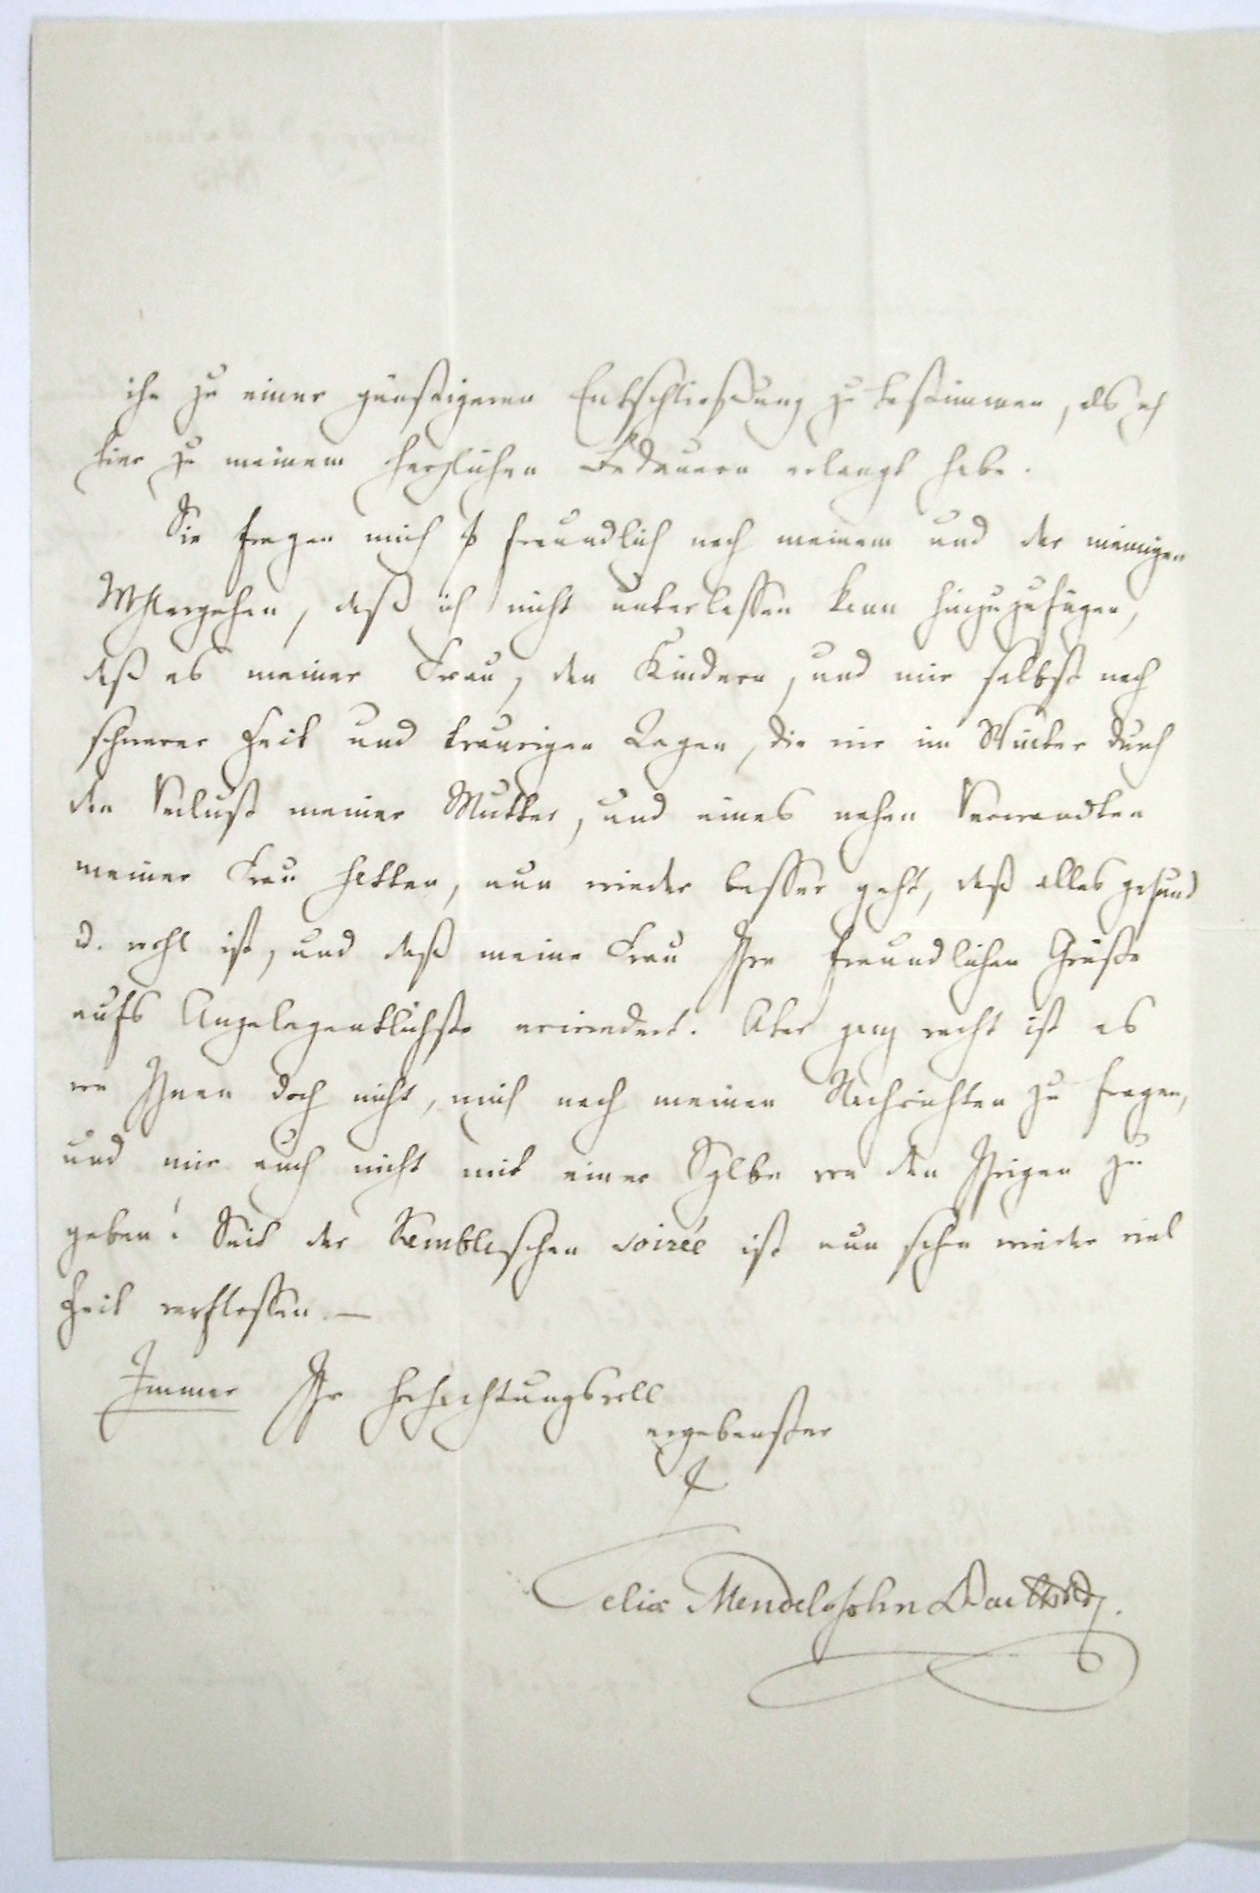 ihn zu einer günstigeren Entschließung zu bestimmen, als ich
hier zu meinem herzlichen Bedauern erlangt habe.
Sie fragen mich so freundlich nach meinem und der meinigen
Wohlergehen, daß ich nicht unterlassen kann hinzuzufügen,
daß es meiner Frau, den Kindern, und mir selbst nach
schwerer Zeit und traurigen Tagen, die wir im Winter durch
den Verlust meiner Mutter, und eines nahen Verwandten
meiner Frau hatten, nun wieder besser geht, daß alles gesund
u. wohl ist, und daß meine Frau Ihre freundlichen Grüße
aufs Angelegentlichste erwiedert. Aber ganz recht ist es
von Ihnen doch nicht, mich nach meinen Nachrichten zu fragen,
und mir auch nicht mit einer Sylbe von den Ihrigen zu
geben! Seit der Kembleschen soirée ist nun schon wieder viel
Zeit verflossen. —
Immer Ihr hochachtungsvoll
ergebenster
Felix Mendelssohn Bartholdy.